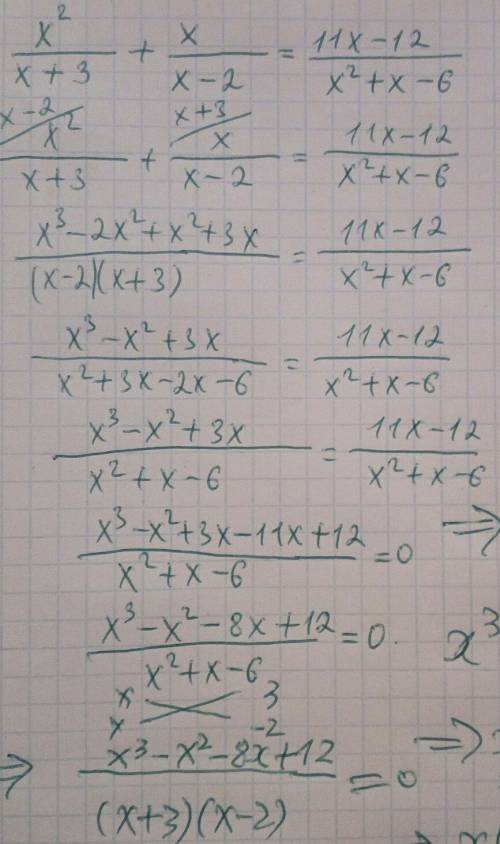 x²/(x+3) + x/(x-2) = (11x-12)/(x²+x-6)
x-2 x²/(x+3) + x+3 x/(x-2) = (11x-12)/(x²+x-6)
(x³-2x²+x²+3x)/((x-2)(x+3)) = (11x-12)/(x²+x-6)
(x³-x²+3x)/(x²+3x-2x-6) = (11x-12)/(x²+x-6)
(x³-x²+3x)/(x²+x-6) = (11x-12)/(x²+x-6)
(x³-x²+3x-11x+12)/(x²+x-6) = 0 ⇒
(x³-x²-8x+12)/(x²+x-6) = 0. x³
x 3
x -2
⇒ (x³-x²-8x+12)/((x+3)(x-2)) = 0 ⇒